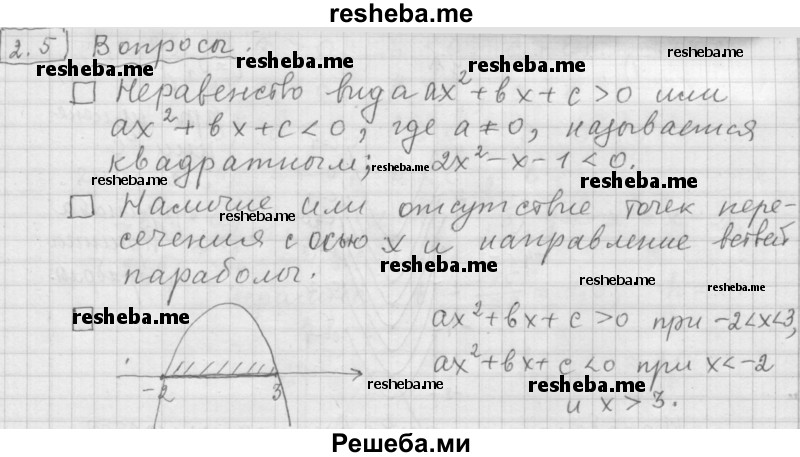 resheba.me
2.5 Вопросы.
resheba.me resheba.me resheba.me resheba.me
□ Неравенство вида ax²+bx+c>0 или
ax²+bx+c<0, где a≠0, называется
квадратным; resheba.me 2x²-x-1<0.
resheba.me resheba.me
□ Наличие или отсутствие точек пере-
resheba.me
сечения с осью x и направление ветвей
resheba.me
параболы.
resheba.me resheba.me
□ ax²+bx+c>0 при -2<x<3,
resheba.me
ax²+bx+c<0 при x<-2
resheba.me resheba.me
-2 3 и x>3.
Решеба.ми